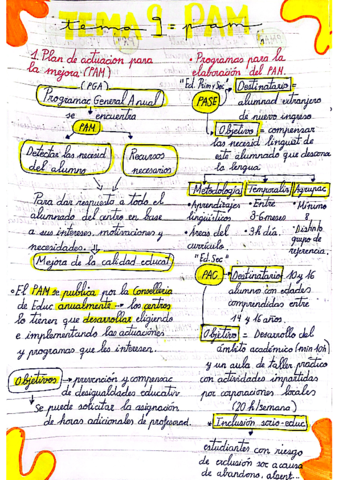 TEMA 9 = PAM
1. Plan de actuacion para
la mejora: (PAM)
(PGA)
Programac General Anual
se encuentra
PAM
Detectar las necesid
del alumno
Recursos
necesarios
Para dar respuesta a todo el
alumnado del centro en base
a sus intereses, motivaciones y
necesidades.
Mejora de la calidad educat
• El PAM se publica por la Conselleria
de Educ anualmente → los centros
lo tienen que desarrollar eligiendo
e implementando las actuaciones
y programas que les interesen.
Objetivos → prevención y compensac
de desigualdades educativ
Se puede solicitar la asignación
de horas adicionales de profesorad.
• Programas para la
elaboración del PAM.
"Ed. Prim y Sec"
PASE
Destinatario =
alumnad extranjero
de nuevo ingreso
Objetivo = compensar
las necesid lingüist de
este alumnado que descono
la lengua
Metodología
• Aprendizajes
lingüísticos
• Areas del
currículo.
Temporaliz
• Entre
3-6 meses
• 3h día.
Agrupac
• Mínimo
8
grupo de
referencia.
"Ed. Sec"
PAC
Destinatario: 10 y 16
alumno con edades
comprendidas entre
14 y 16 años.
Objetivo = Desarrollo del
ámbito académico (min 10h)
y un aula de taller práctico
con actividades impartidas
por corporaciones locales
(20 h/semana)
Inclusión socio-educ
estudiantes con riesgo
de exclusión soc a causa
de abandono, absent...